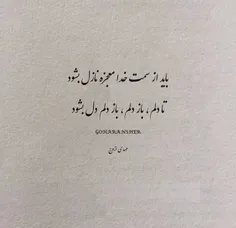 باید از سمت خدا معجزه نازل بشود
تا دلم ، باز دلم ، باز دلم دل بشود
مهدی فرجی